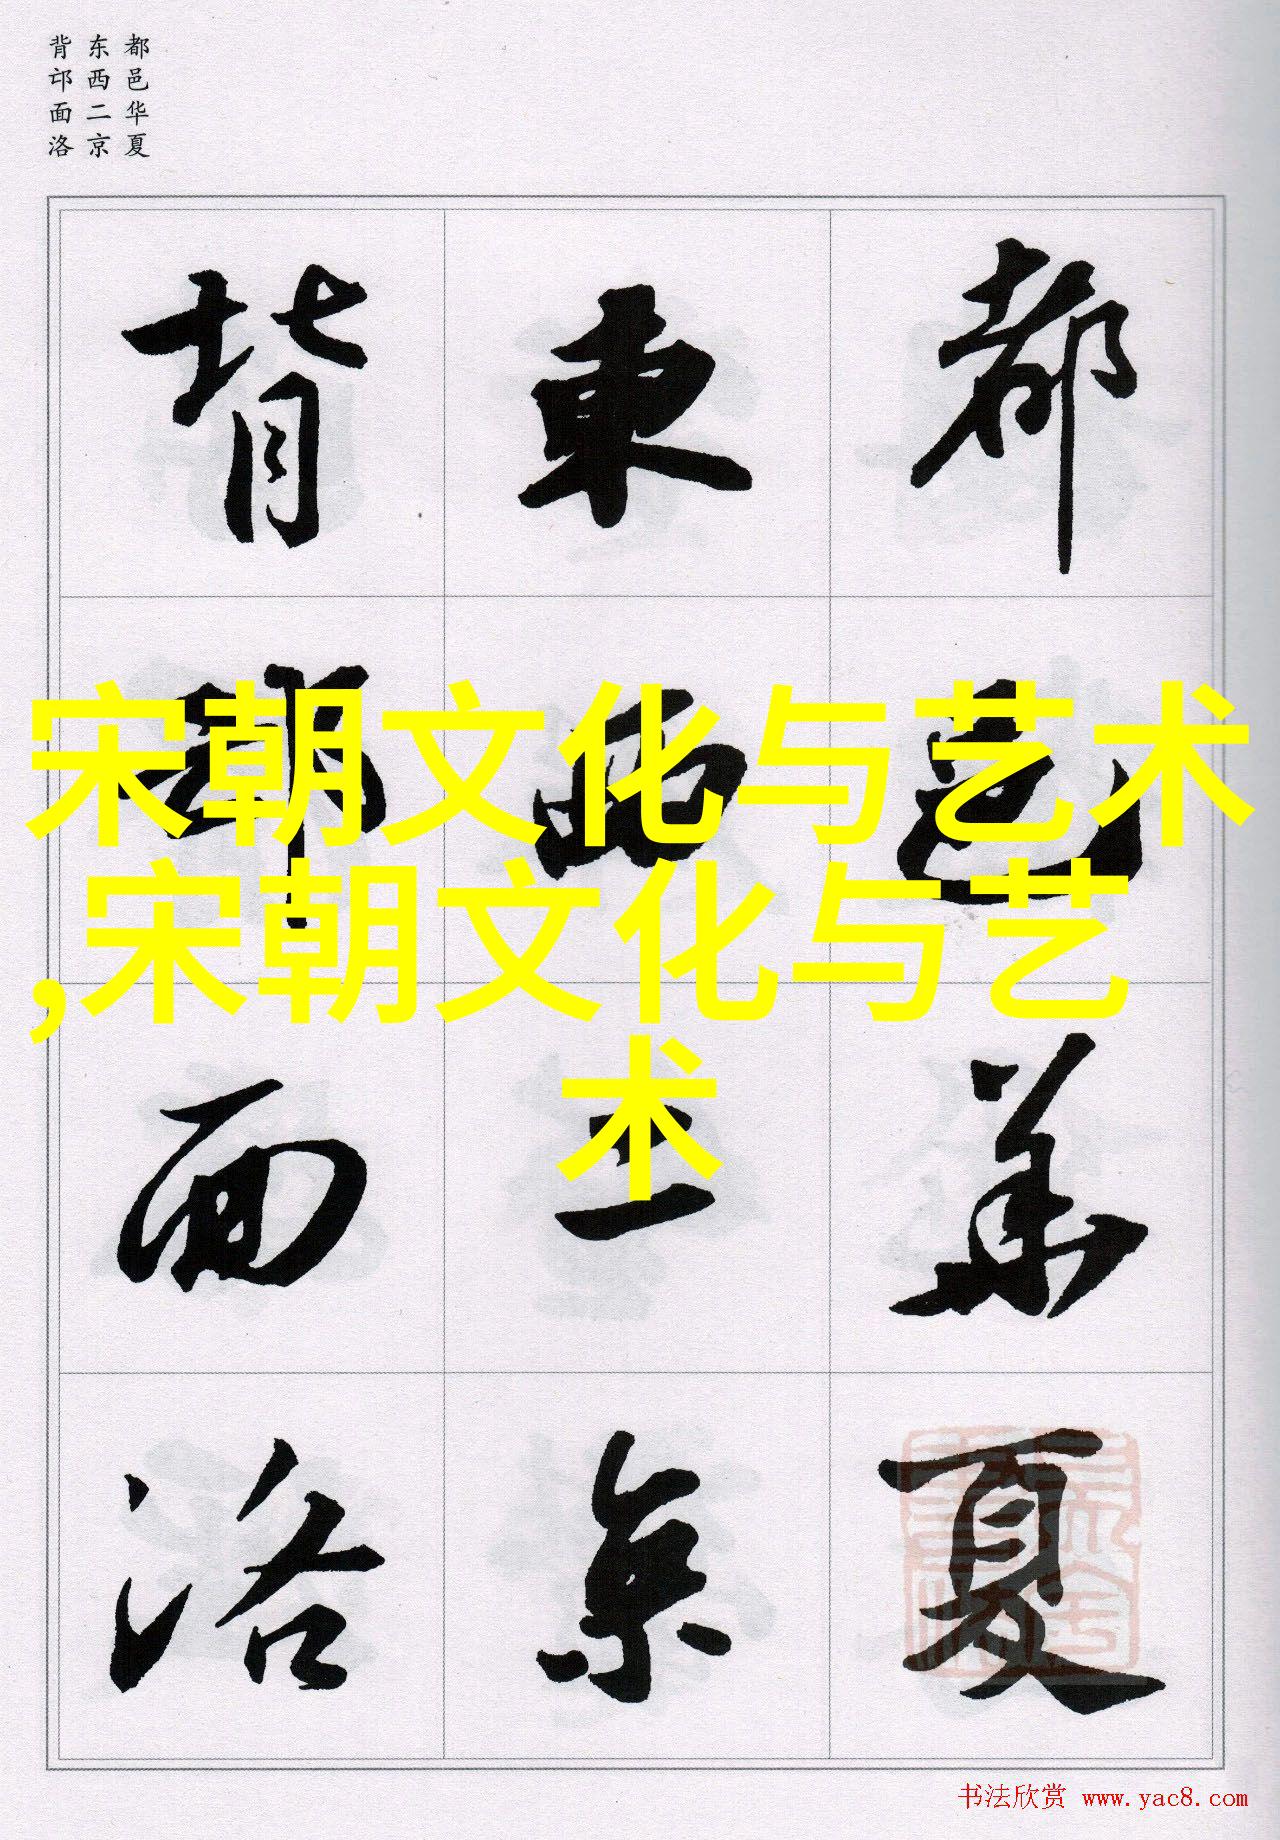 都邑华夏
东西二京
背邙面洛
都邑華夏
東西二京
背邙面洛
宋朝文化与艺术
,宋朝文化与艺
术
书法欣赏 www.yac8.com